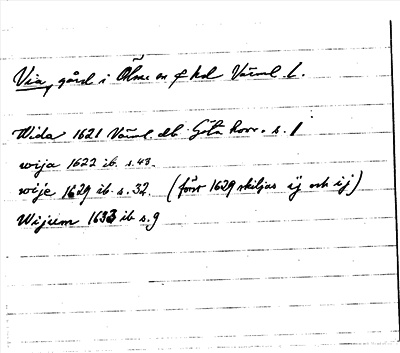 Via, gård i Ölme sn o hd Värml. l.
Wida 1621 Värml. db Göta hovr. s. 1
wija 1622 ib. s. 43.
wije 1629 ib. s. 32 (först 1629 skiljas ij och ij)
Wijum 1633 ib s. 9